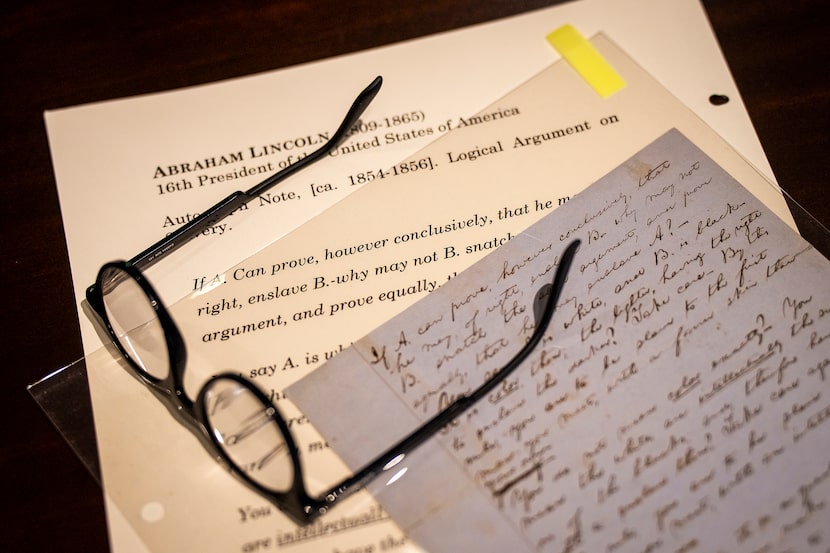 ABRAHAM LINCOLN 809-1865)
16th President of the United States of America
Autograph Note, [ca. 1854-1856]. Logical Argument on
very.
If A. Can prove, however conclusively, that he m
right, enslave B.-why may not B. snatch
argument, and prove equally,
say A. is wh
You
are intellectual
have the
If A. can prove, however conclusively, that
he may, of right, enslave B. why may not
B. snatch the same argument, and prove
equally, that he may enslave A?—
You say A. is white, and B. is black—
It is color, then; the lighter, having the right
to enslave the darker? Take care— By this
rule, you are to be slave to the first
man you meet, with a fairer skin than
your own—
You do not mean color exactly?— You
mean the whites are intellectually the
of the blacks, and, therefore
to enslave them? Take care
rule, you are to be slave
you meet, with an